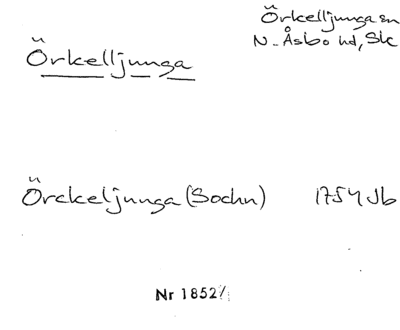 Örkelljunga sn
N. Åsbo hd, Sk
Örkelljunga
Örckeljunga (Sochn) 1754 Jb
Nr 1852/